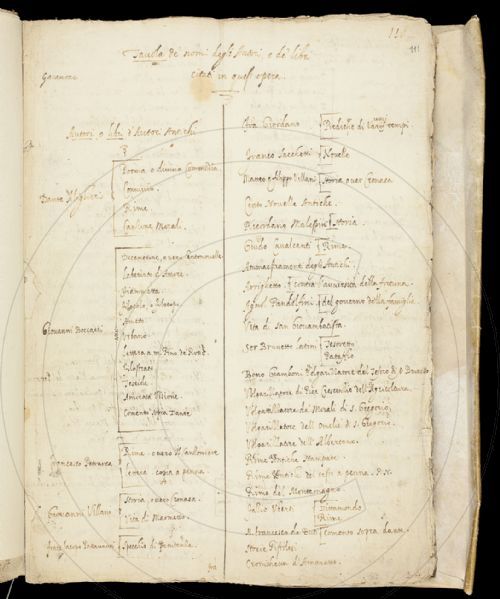 111
111
Tavola de' nomi degli Autori, e de' libri
citati in quest' opera.
Autori, o libri d'Autori Antichi
Dante Alighieri
Poema o divina Commedia
Convivio.
Rime.
Canzone Morali.
Giovanni Boccacci
Decamerone, o vero Centonovelle
Laberinto d'Amore.
Fiammetta.
Ameto.
Urbano.
Lettera a m. Pino de' Rossi.
Filostrato
Teseide
Comento sopra Dante
Francesco Petrarca
Rime, o vero il Canzoniere
copia a penna.
Giovanni Villani
Storia, o vero Cronaca.
Vita di Maometto.
frate Jacopo Passavanti
Specchio di Penitenza.
fra
Fra Giordano
Prediche di varij tempi.
Franco Sacchetti
Novelle
Matteo e Filippo Villani
Storia, o ver Cronaca
Cento Novelle Antiche.
Ricordano Malespini
Storia.
Guido Cavalcanti
Rime.
Ammaestramenti degli Antichi.
Arrighetto
contra l'avversità della fortuna.
Agnol Pandolfini
del governo della famiglia.
Vita di San Giovambatista.
Ser Brunetto Latini
Tesoretto
Pataffio
Bono Giamboni Volgarizzatore del Tesoro di S. Brunetto
Volgarizzatore di Pier Crescenzio dell'Agricoltura.
Volgarizzatore de' Morali di S. Gregorio.
Volgarizzatore dell' Omelie di S. Gregorio.
Volgarizzatore dell' Albertano.
Rime Antiche Stampate.
Rime Antiche del testo a penna. P. N.
Rime del Montemagno
Fazio Uberti
Dittamondo
Rime
M. Francesco da Buti
Comento sopra Dante.
Storie Pistolesi
Cronichetta d'Amaretto.